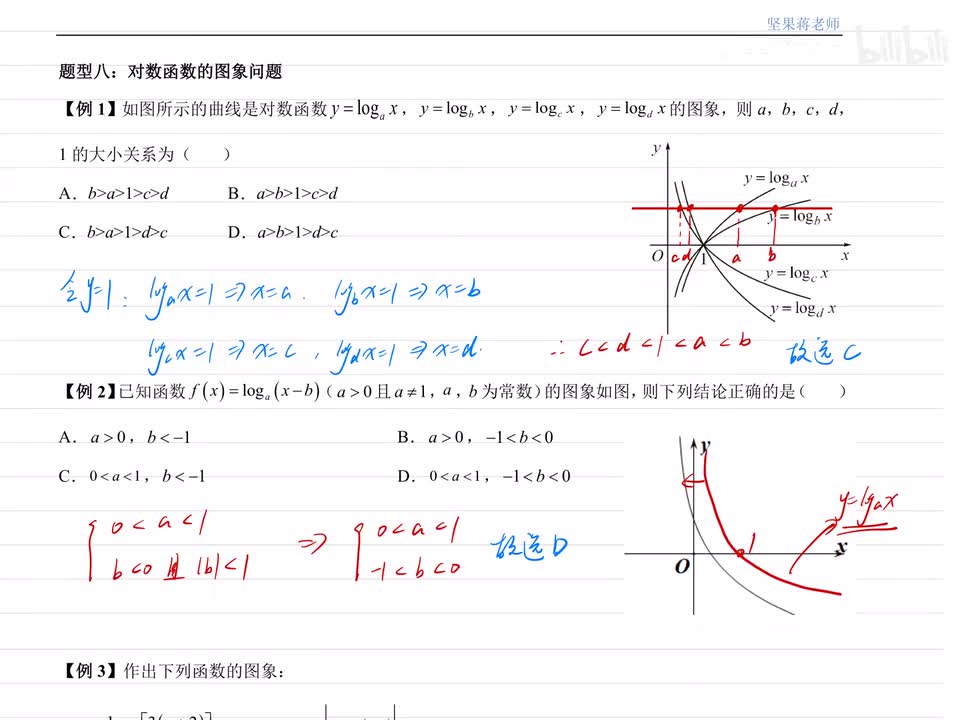 坚果蒋老师
bilibili
题型八：对数函数的图象问题
【例 1】如图所示的曲线是对数函数 y=logₐ x，y=log_b x，y=log_c x，y=log_d x 的图象，则 a，b，c，d，
1 的大小关系为（　　）
A．b>a>1>c>d　　B．a>b>1>c>d
C．b>a>1>d>c　　D．a>b>1>d>c
y
y=logₐ x
y=log_b x
O c d 1 a b x
y=log_c x
y=log_d x
令y=1：logₐx=1⇒x=a．log_bx=1⇒x=b
log_cx=1⇒x=c，log_dx=1⇒x=d．
∴c<d<1<a<b　故选C
【例 2】已知函数 f(x)=logₐ(x−b)（a>0且a≠1，a，b为常数）的图象如图，则下列结论正确的是（　　）
A．a>0，b<−1　　B．a>0，−1<b<0
C．0<a<1，b<−1　　D．0<a<1，−1<b<0
y
y=logₐx
1
x
O
{0<a<1
b<0且|b|<1
⇒{0<a<1
-1<b<0
故选D
【例 3】作出下列函数的图象：